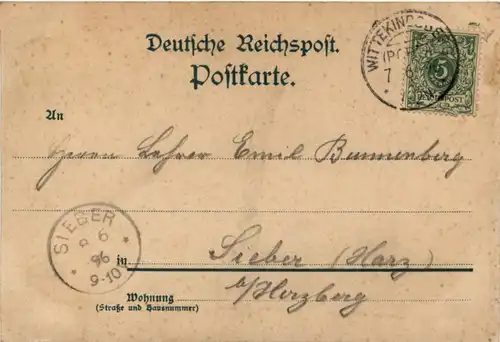 Deutsche Reichspost.
Postkarte.
WITTEKINDSBURG
(PORTA)
7 6
5
An
Herrn Lehrer Emil Bunnenberg
SIEBER
8 6
96
9-10
in Sieber (Harz)
b/Herzberg
Wohnung
(Straße und Hausnummer)